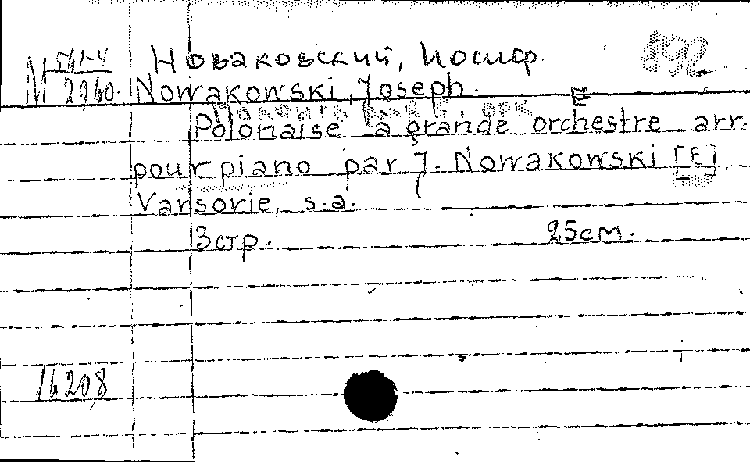 Новаковский, Иосиф.
М 2960. Nowakowski, Joseph.
Polonaise à grande orchestre arr.
pour piano par J. Nowakowski [E]
Varsovie, s.a.
3стр. 25см.
16208